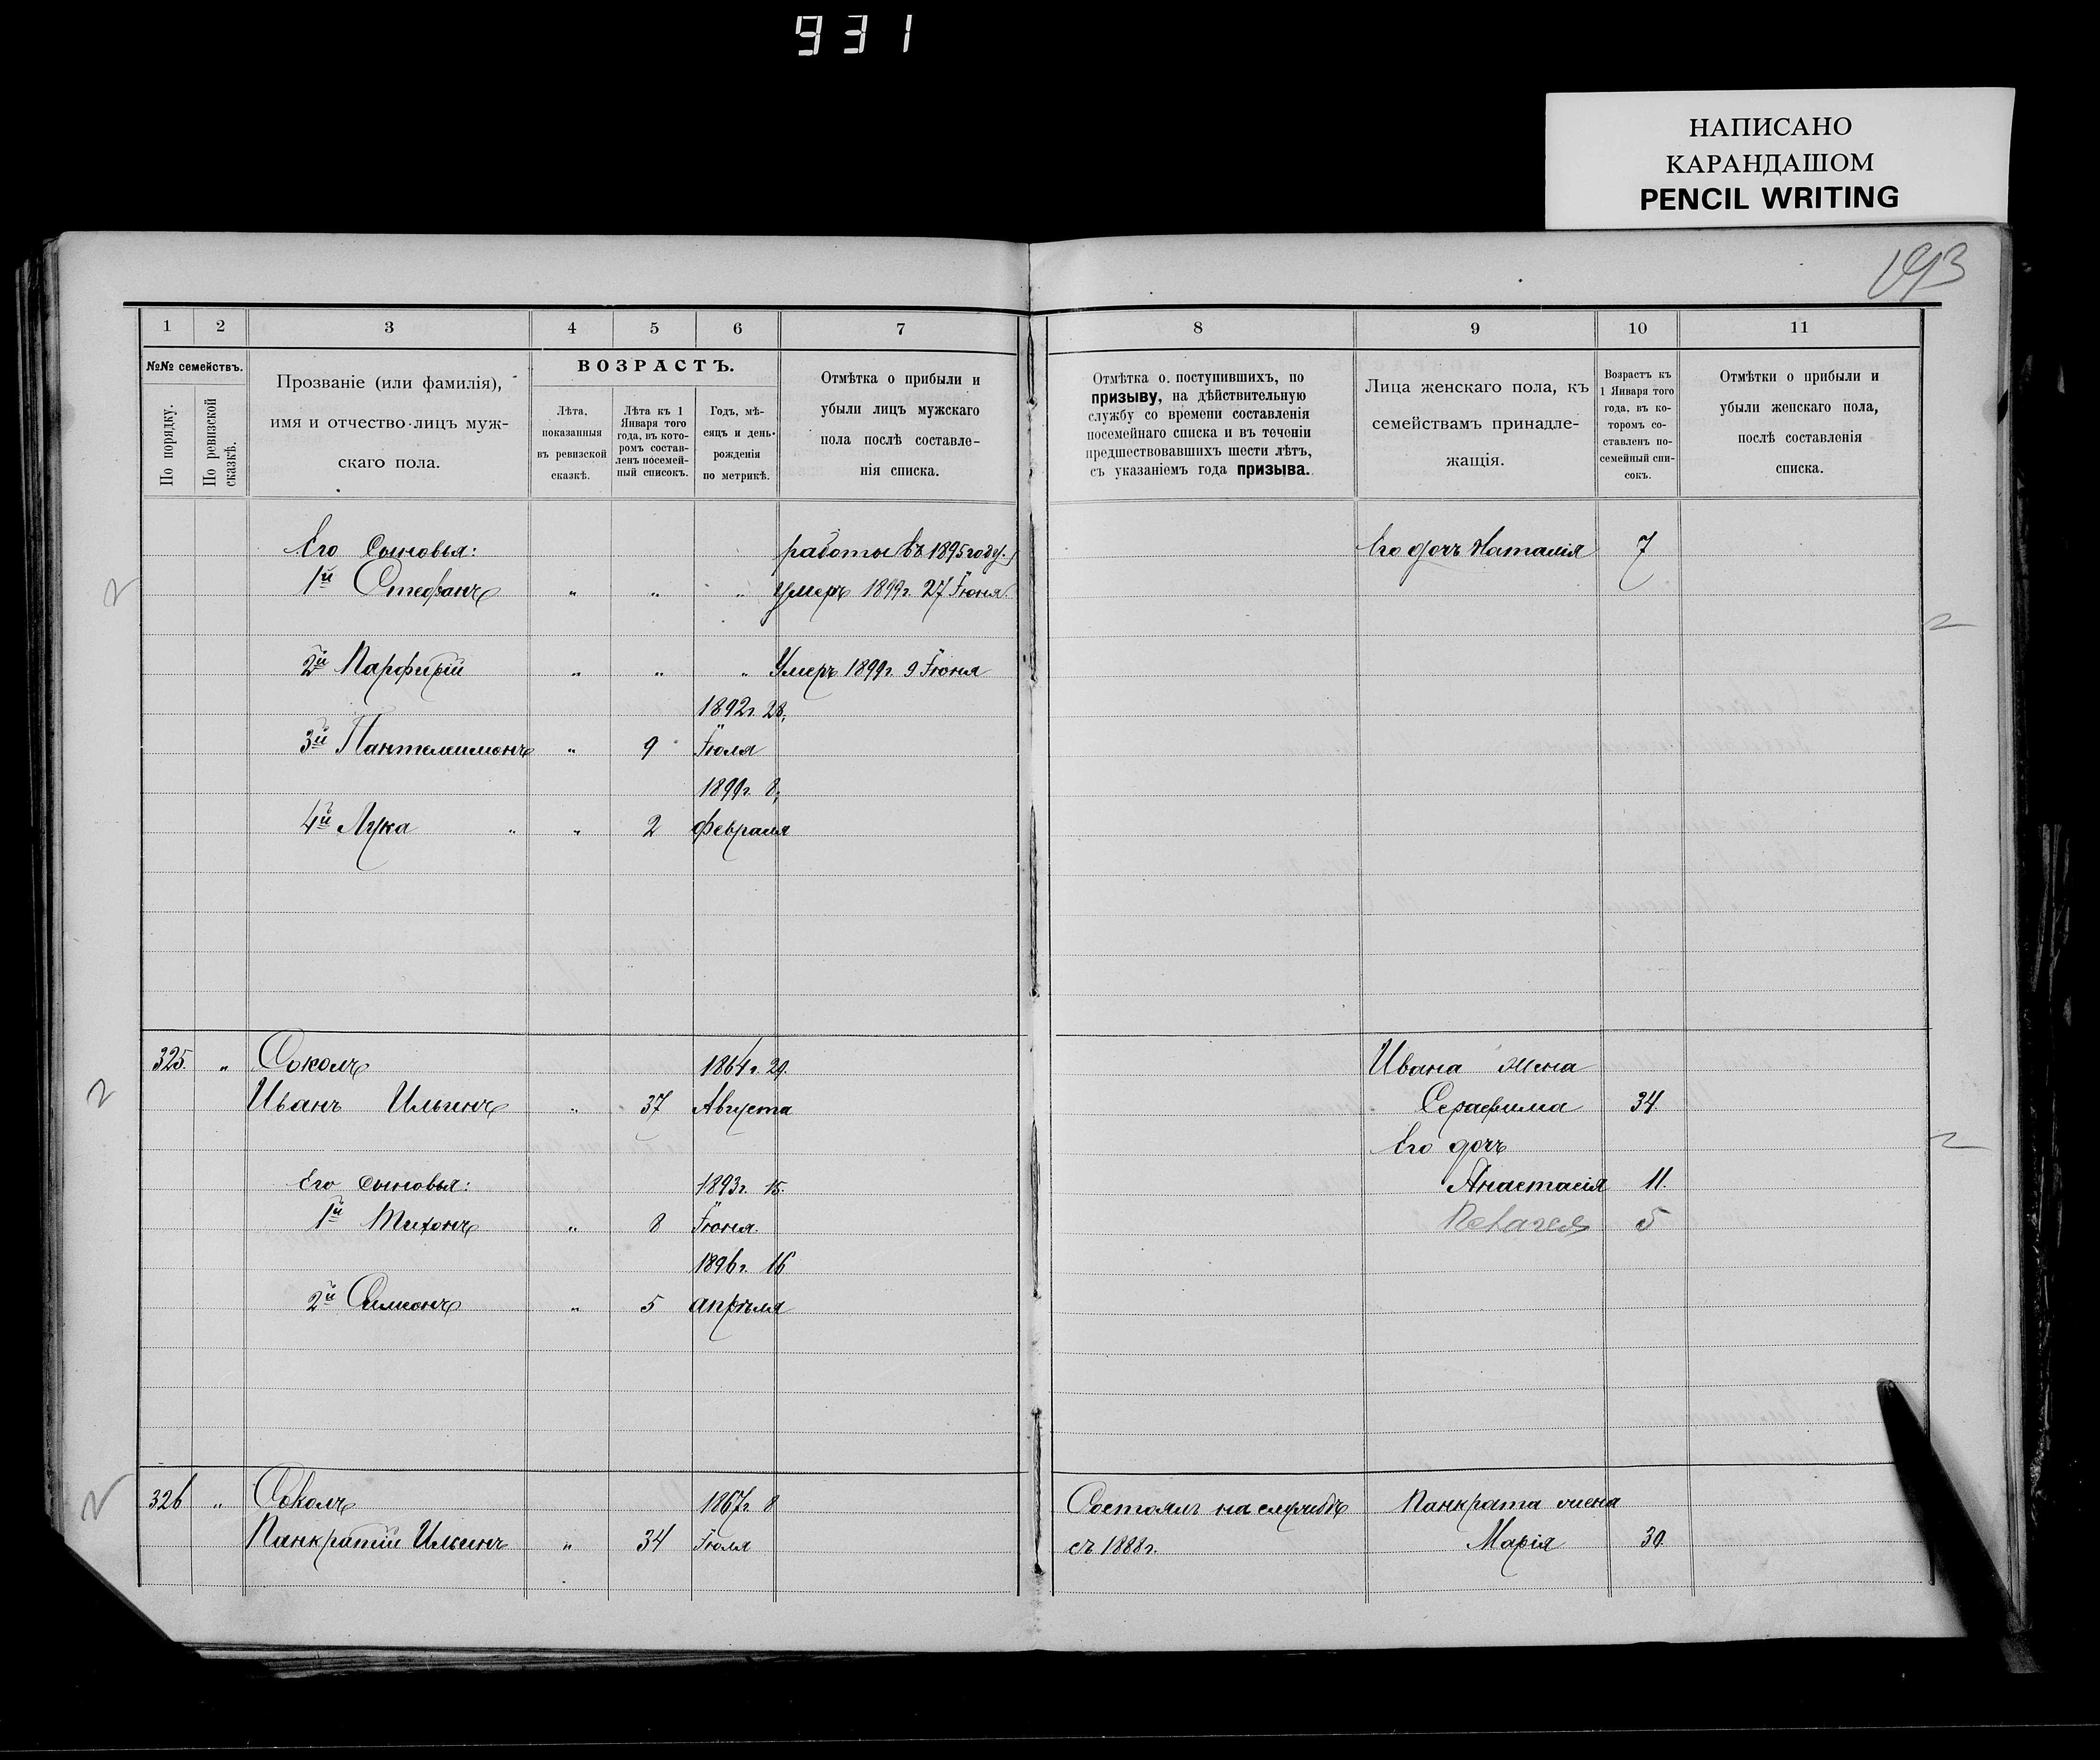 931
НАПИСАНО
КАРАНДАШОМ
PENCIL WRITING
193
1 2 3 4 5 6 7 8 9 10 11
№№ семействъ.
По порядку.
По ревизской сказкѣ.
Прозваніе (или фамилія),
имя и отчество лицъ муж-
скаго пола.
ВОЗРАСТЪ.
Лѣта,
показанныя
въ ревизской
сказкѣ.
Лѣта къ 1
Января того
года, въ кото-
ромъ состав-
ленъ посемей-
ный списокъ.
Годъ, мѣ-
сяцъ и день
рожденія
по метрикѣ.
Отмѣтка о прибыли и
убыли лицъ мужскаго
пола послѣ составле-
нія списка.
Отмѣтка о. поступившихъ, по
призыву, на дѣйствительную
службу со времени составленія
посемейнаго списка и въ теченіи
предшествовавшихъ шести лѣтъ,
съ указаніемъ года призыва.
Лица женскаго пола, къ
семействамъ принадле-
жащія.
Возрастъ къ
1 Января того
года, въ ко-
торомъ со-
ставленъ по-
семейный спи-
сокъ.
Отмѣтки о прибыли и
убыли женскаго пола,
послѣ составленія
списка.
Его Сыновья: работы въ 1895 году. Его дочь Наталія 7
1й Стефанъ " " " умеръ 1899г. 27 Іюня.
2й Парфирій " " " Умеръ 1899г. 9 Іюня
1892г. 28,
3й Пантелимонъ " 9 Іюля
1899г. 8,
4й Лука " " 2 Февраля
325. " Соколъ 1864г. 29. Ивана жена
Иванъ Ильинъ " 37 Августа Серафима 34.
Его дочь
Его сыновья: 1893г. 15. Анастасія 11.
1й Тихонъ " 8 Іюня Пелагея 5
1896г. 16
2й Симеонъ " 5 апрѣля
326 " Соколъ 1867г. 8 Состоялъ на службѣ Панкрата жена
Панкратій Ильинъ " 34 Іюля съ 1888г. Марія 30.